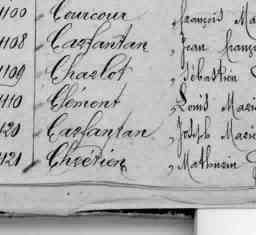 1100 Courcoux , François Ma
1108 Carfantan , Jean Franço
1109 Charlot , Sébastien
1110 Clément , Louis Marie
1120 Carfantan , Joseph Marie
1121 Chrétien , Mathurin